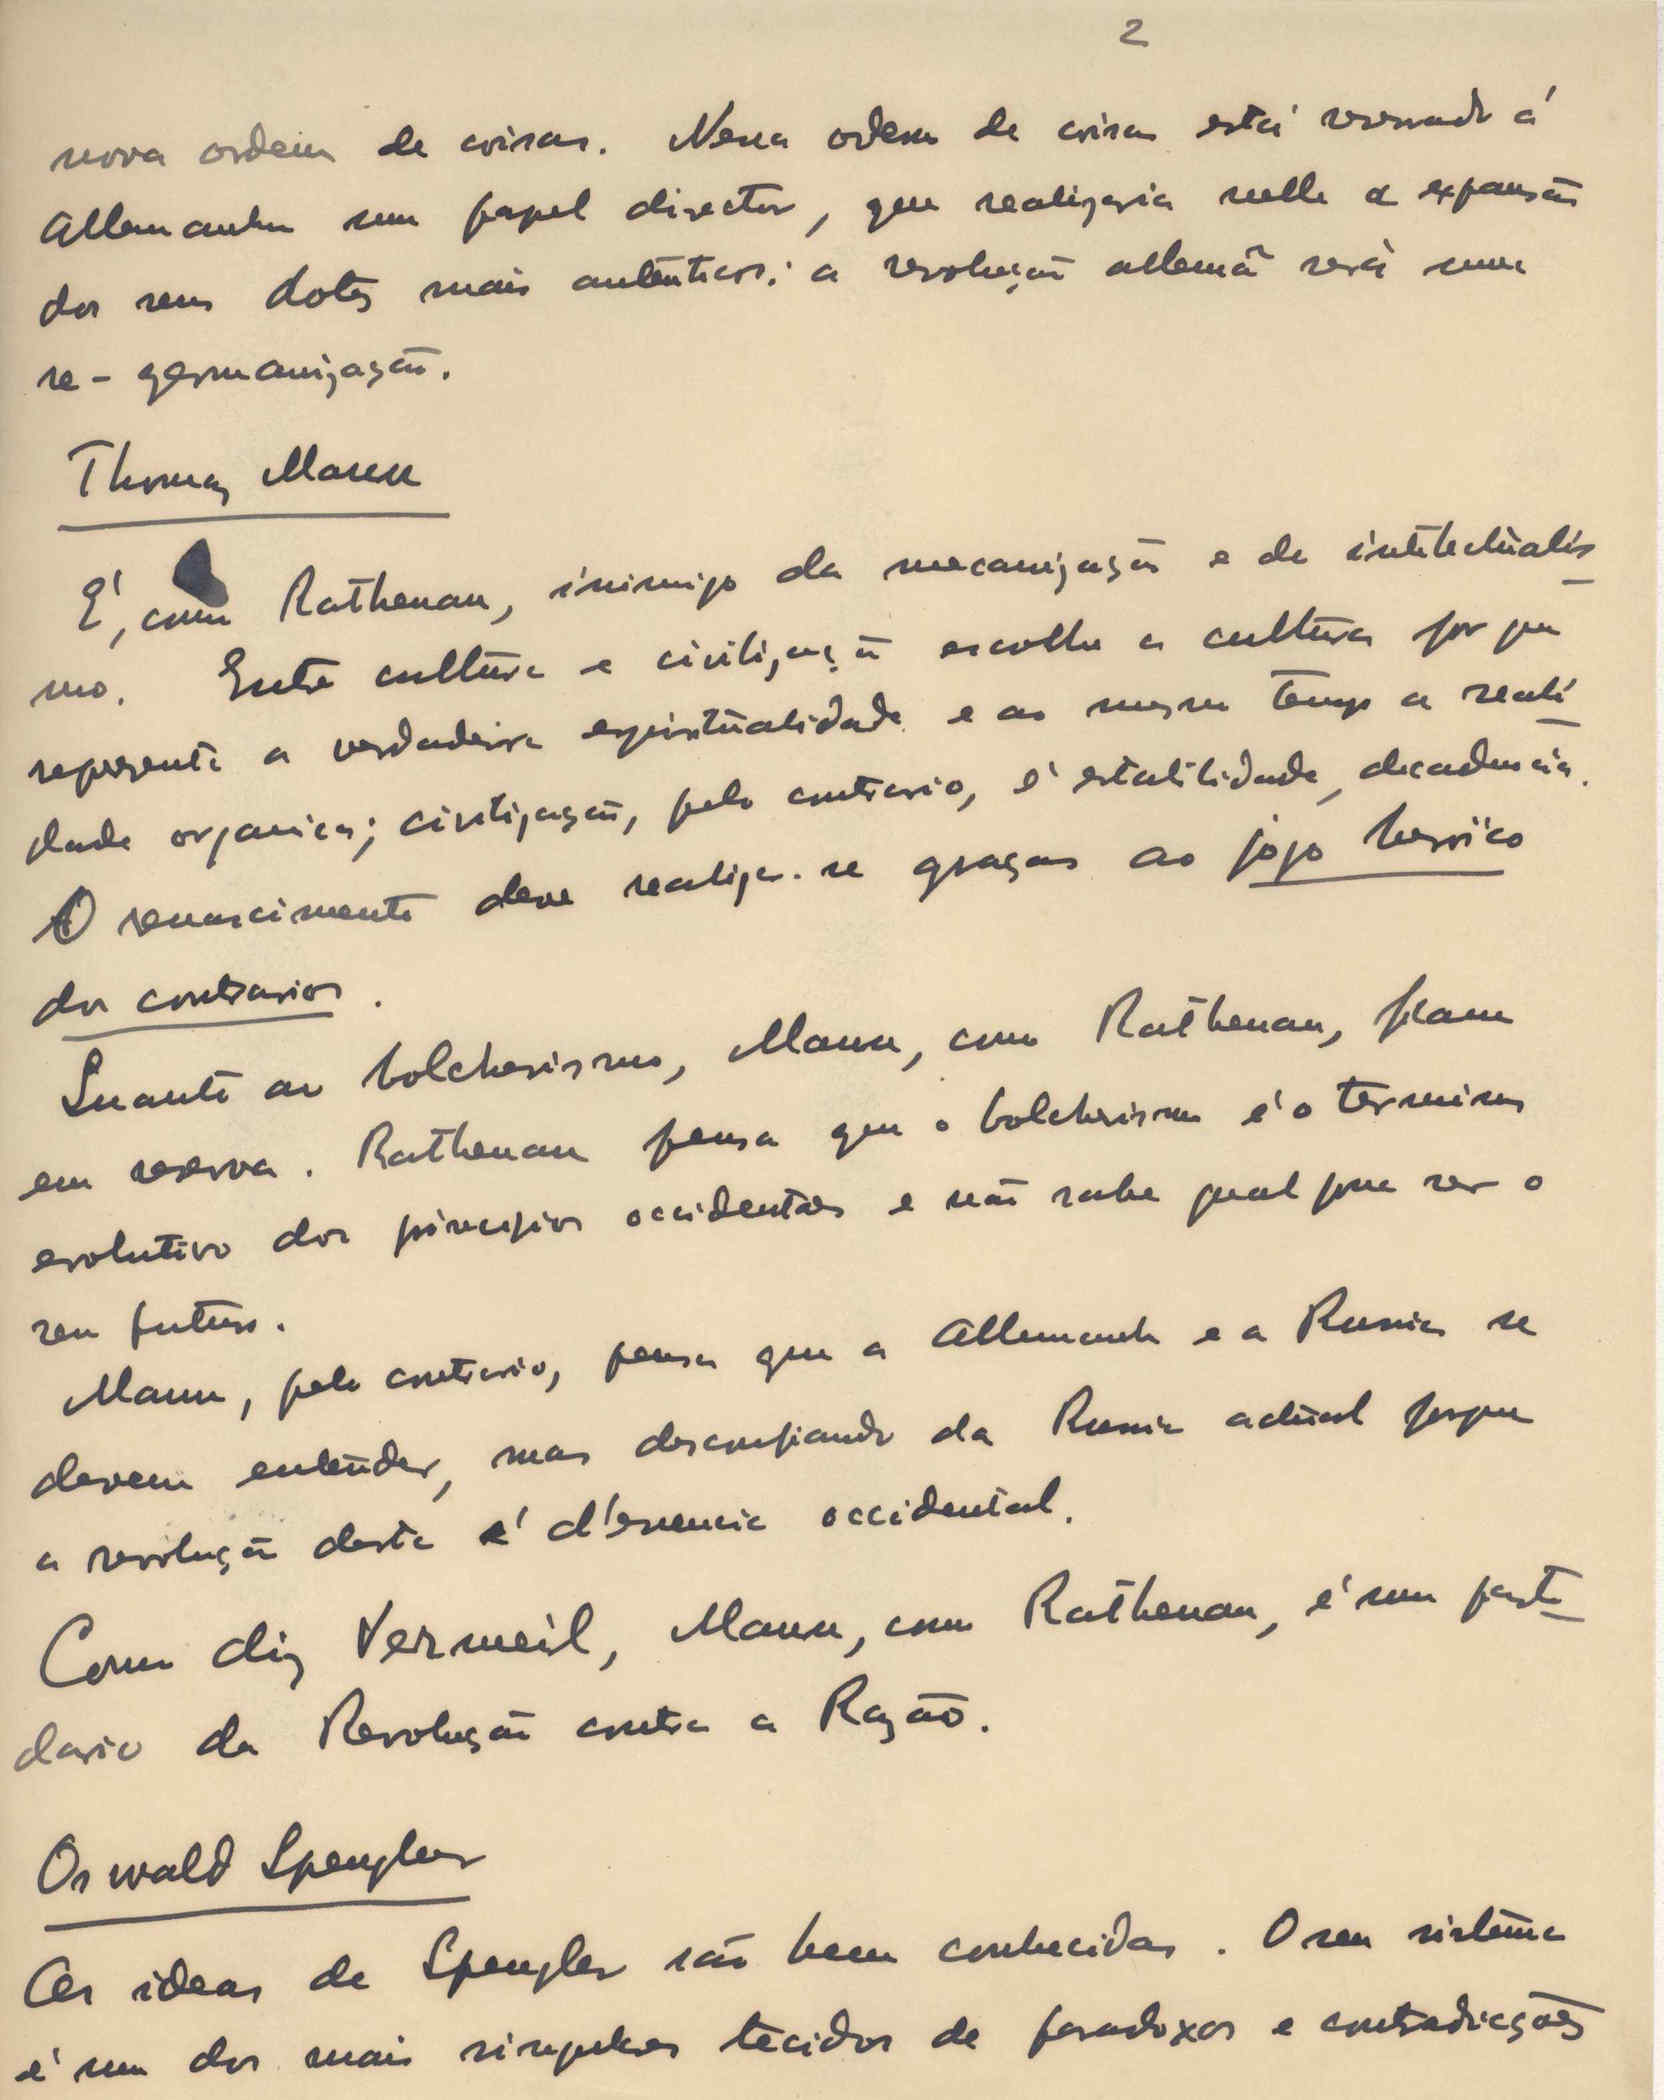 2
nova ordem de coisas. Nessa ordem de coisas está reservado á
Allemanha um papel director, que realizaria nelle a expansão
dos seus dotes mais autênticos: a revolução allemã será uma
re-germanização.
Thomas Mann
E', como Rathenau, inimigo da mecanização e do intelectualis
mo. Entre cultura e civilização escolhe a cultura porque
representa a verdadeira espiritualidade e ao mesmo tempo a reali
dade organica; civilização, pelo contrario, é estabilidade, decadencia.
O renascimento deve realizar-se graças ao jogo heroico
dos contrarios.
Quanto ao bolchevismo, Mann, como Rathenau, ficam
em reserva. Rathenau pensa que o bolchevismo é o terminus
evolutivo dos principios occidentaes e não sabe qual possa ser o
seu futuro.
Mann, pelo contrario, pensa que a Allemanha e a Russia se
devem entender, mas desconfiando da Russia actual porque
a revolução desta é d'essencia occidental.
Como diz Vermeil, Mann, como Rathenau, é um parti
dario da Revolução contra a Razão.
Oswald Spengler
As ideas de Spengler são bem conhecidas. O seu sistema
é um dos mais singulares tecidos de paradoxos e contradicções